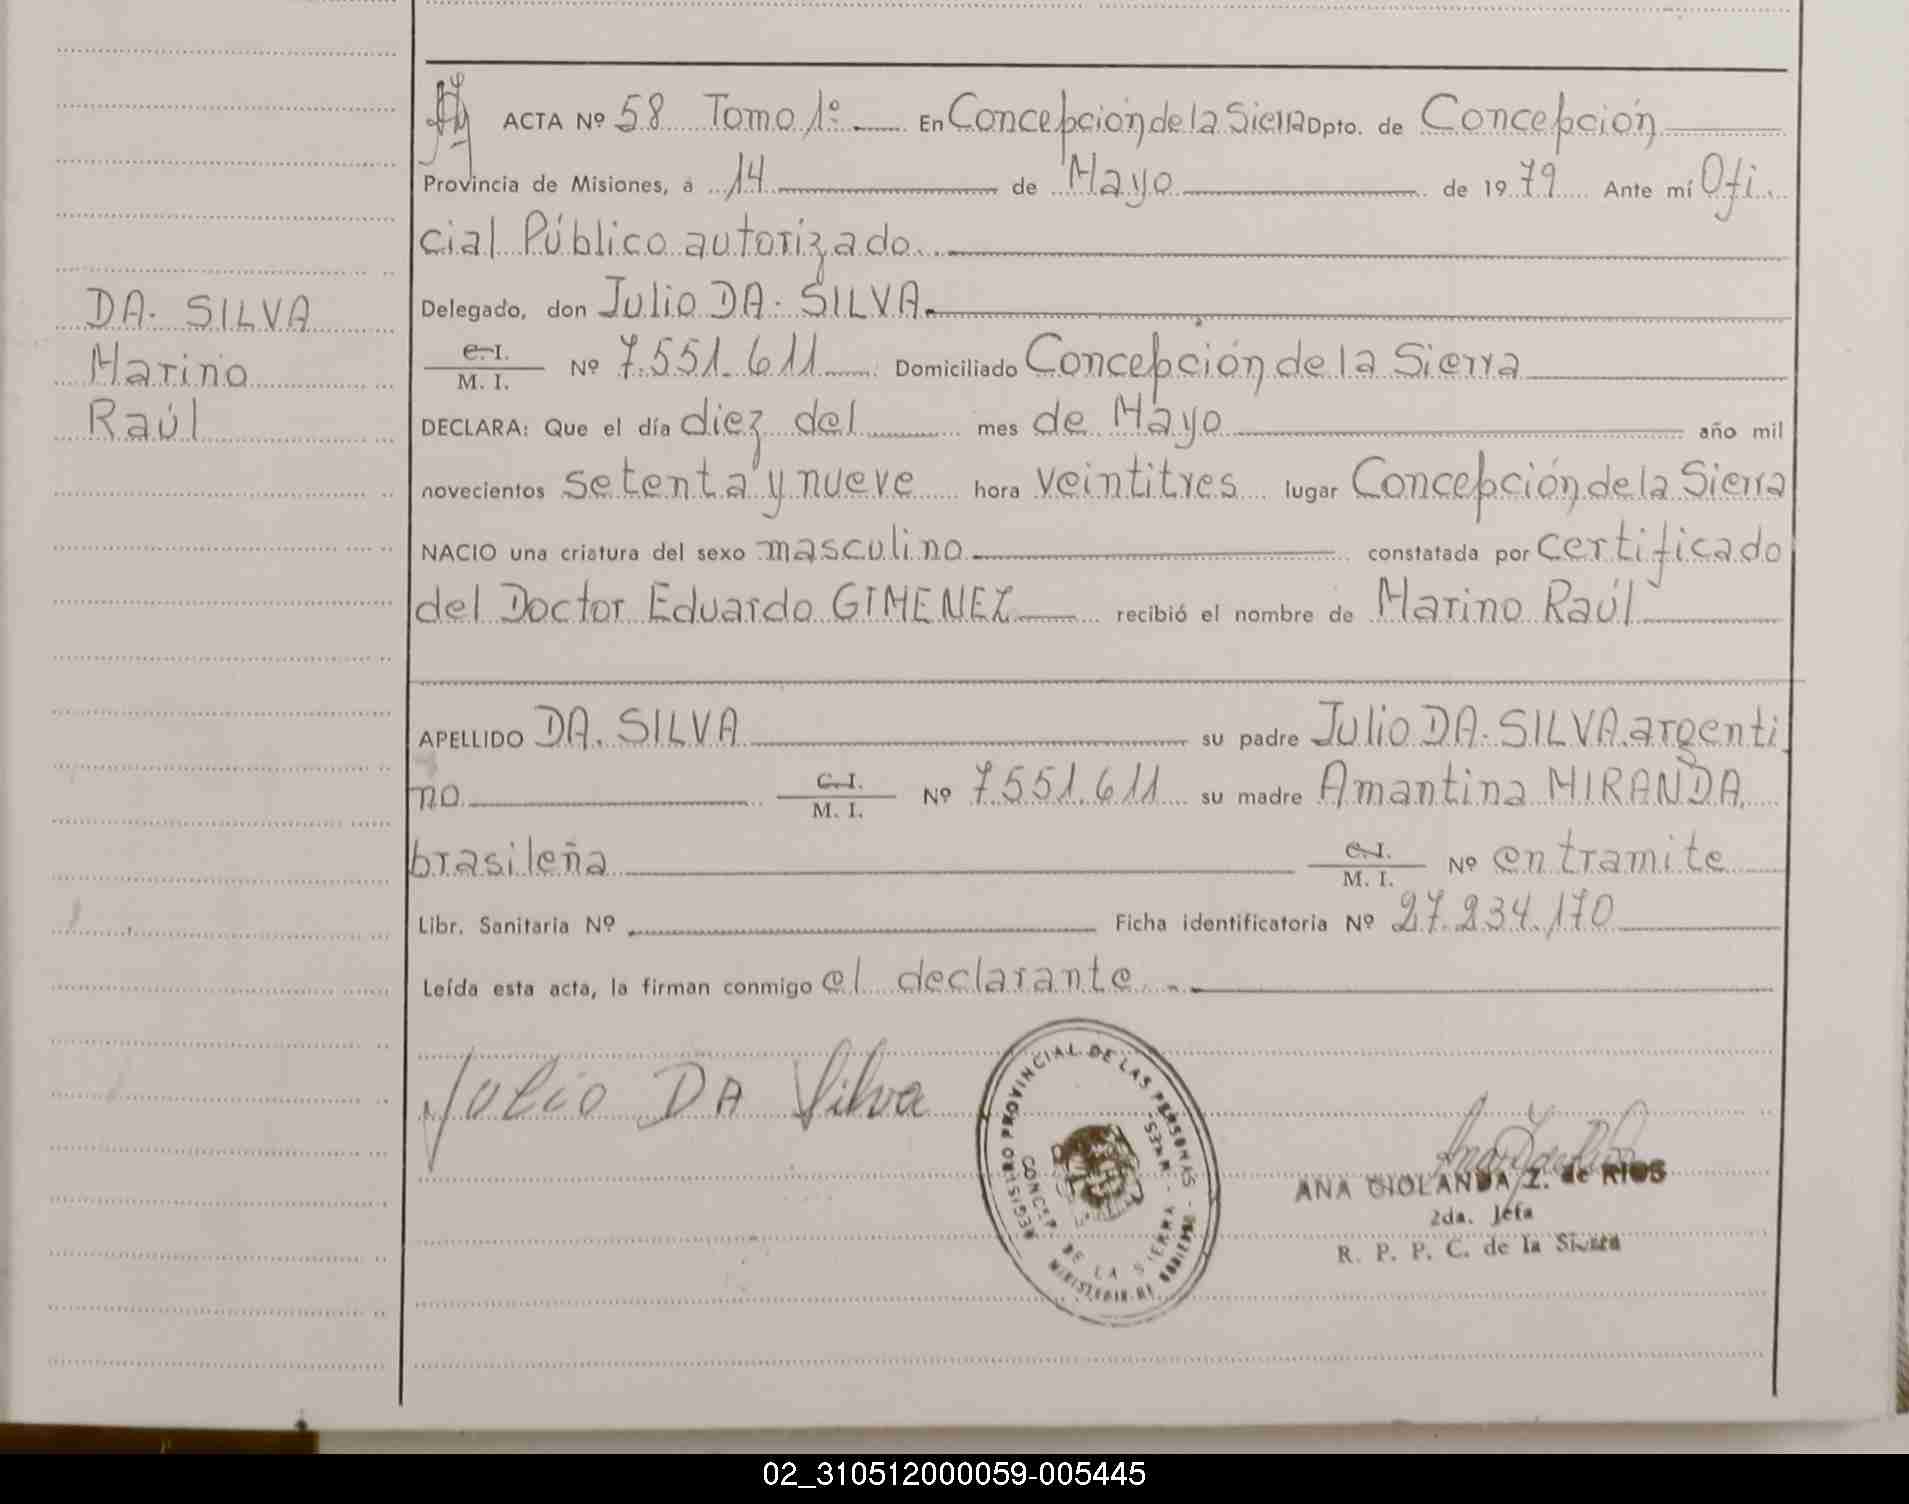 ACTA Nº 58 Tomo 1º En Concepción de la Sierra Dpto. de Concepción
Provincia de Misiones, a 14 de Mayo de 1979 Ante mí Ofi
cial Público autorizado
Delegado, don Julio DA. SILVA.
DA. SILVA
Marino
Raúl
C. I.
M. I. Nº 7.551.611 Domiciliado Concepción de la Sierra
DECLARA: Que el día diez del mes de Mayo año mil
novecientos setenta y nueve hora veintitres lugar Concepción de la Sierra
NACIO una criatura del sexo masculino constatada por certificado
del Doctor Eduardo GIMENEZ recibió el nombre de Marino Raúl
APELLIDO DA. SILVA su padre Julio DA. SILVA. argenti
no C. I.
M. I. Nº 7.551.611 su madre Amantina MIRANDA,
brasileña C. I.
M. I. Nº en tramite
Libr. Sanitaria Nº Ficha identificatoria Nº 27.234.170
Leída esta acta, la firman conmigo el declarante.
Julio DA Silva
REGISTRO PROVINCIAL DE LAS PERSONAS
CONCEP. DE LA SIERRA - MNES -
MINISTERIO DE GOBIERNO
ANA GIOLANDA Z. de RIOS
2da. Jefa
R. P. P. C. de la Sierra
02_310512000059-005445